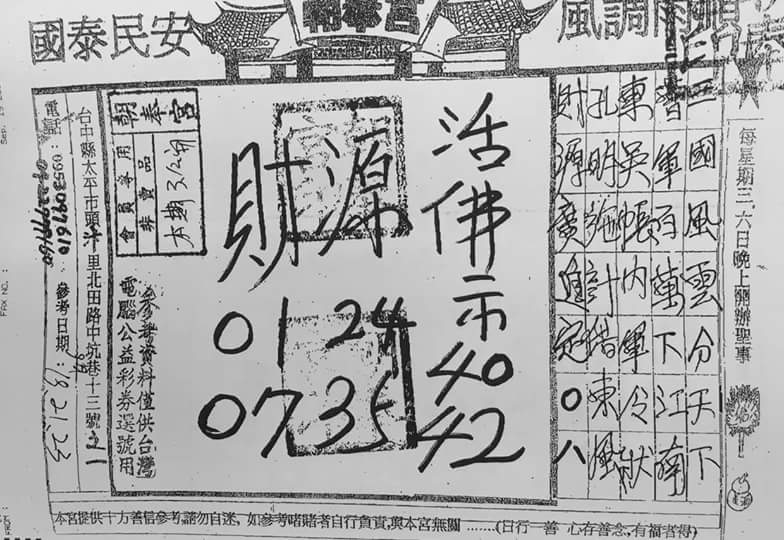 國泰民安
朝奉宮
風調雨順
每星期三.六日晚上開辦聖事
三國風雲分天下
曹軍百萬下江南
東吳帳內軍冷狀
孔明施計借東風
財源廣進冠〇八
活佛示
40
42
財源
01 24
07 35
朝奉宮
會員專用
非賣品
參考資料僅供台灣
電腦公益彩券選號用
台中縣太平市頭汴里北田路中坑巷十三號之一
電話：0553097610
參考日期：
本宮提供十方善信參考,請勿自迷，如參考賭賭者自行負責,與本宮無關 .......(日行一善 心存善念,有福者得)